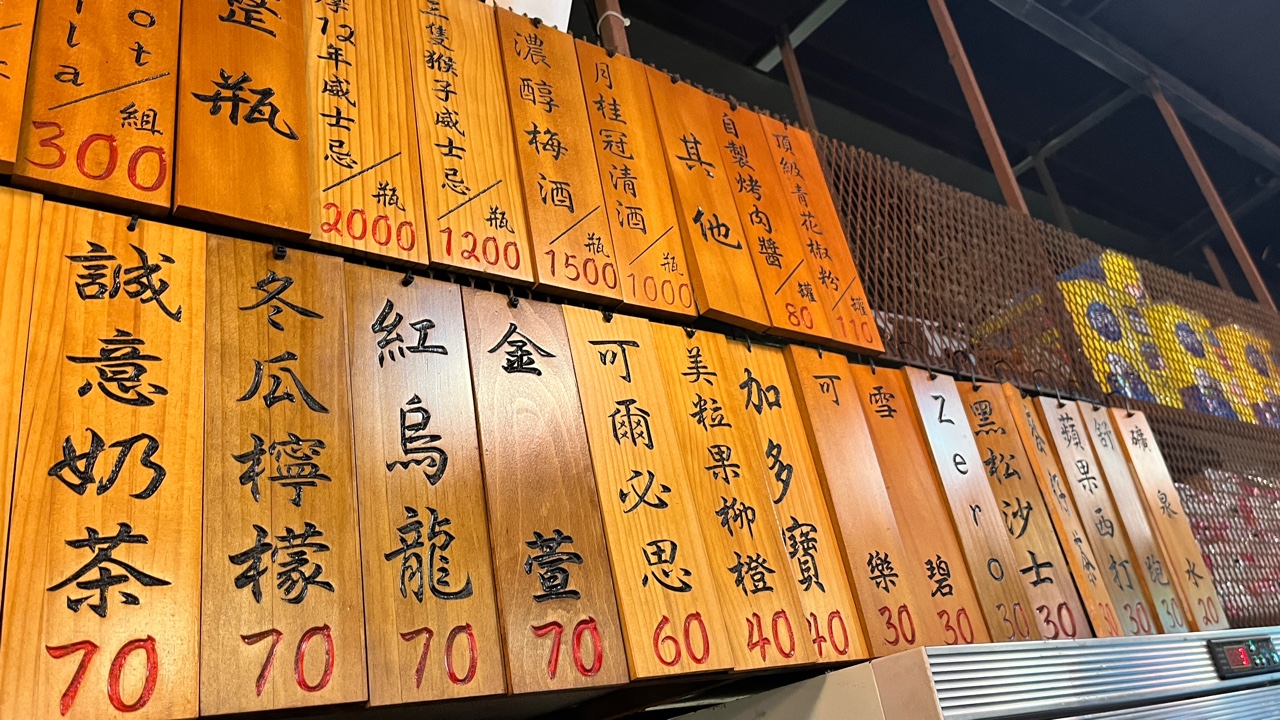 ot/組
la
300
整瓶
12年威士忌/瓶
2000
三隻猴子威士忌/瓶
1200
濃醇梅酒/瓶
1500
月桂冠清酒/瓶
1000
其他
自製烤肉醬/罐
80
頂級青花椒粉/罐
110
誠意奶茶
70
冬瓜檸檬
70
紅烏龍
70
金萱
70
可爾必思
60
美粒果柳橙
40
加多寶
40
可樂
30
雪碧
30
Zero
30
黑松沙士
30
30
蘋果西打
30
舒跑
30
礦泉水
20